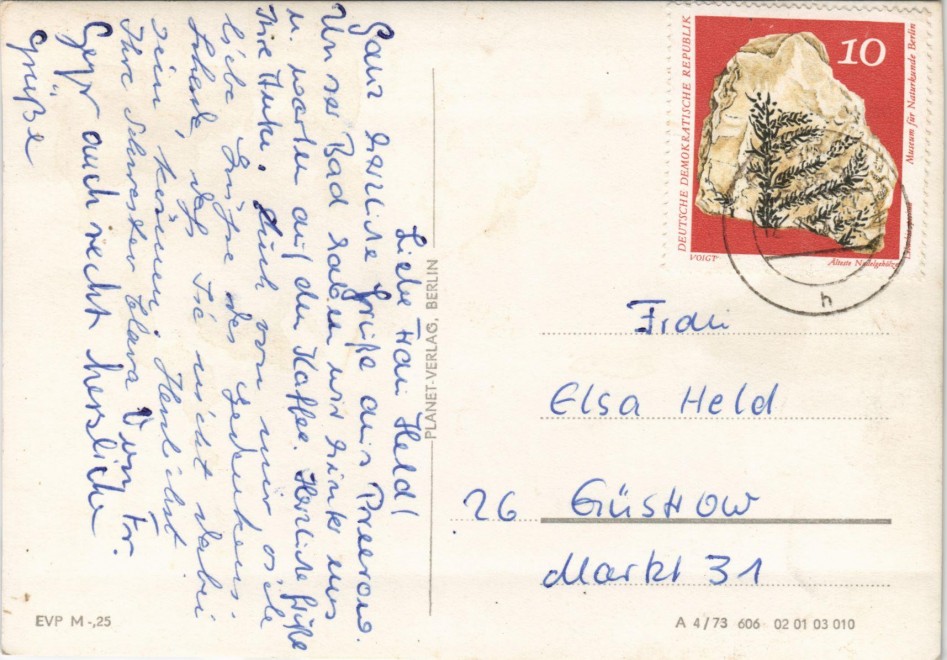 Liebe Frau Held!
Ganz herzliche Grüße aus Prerow.
Unser Bad haben wir hinter uns
u. warten auf den Kaffee. Herzliche Grüße
Ihre Anke. Auch von mir viele
liebe Grüße des Gedenkens.
Schade, daß Sie nicht dabei
sein können, Herzlichst
Ihre Schwester Clara
Gegr auch recht herzliche
Grüße
PLANET-VERLAG, BERLIN
DEUTSCHE DEMOKRATISCHE REPUBLIK
10
Museum für Naturkunde Berlin
VOIGT
Älteste Nadelgehölze
h
Frau
Elsa Held
26 Güstrow
Markt 31
EVP M -,25
A 4/73 606 02 01 03 010